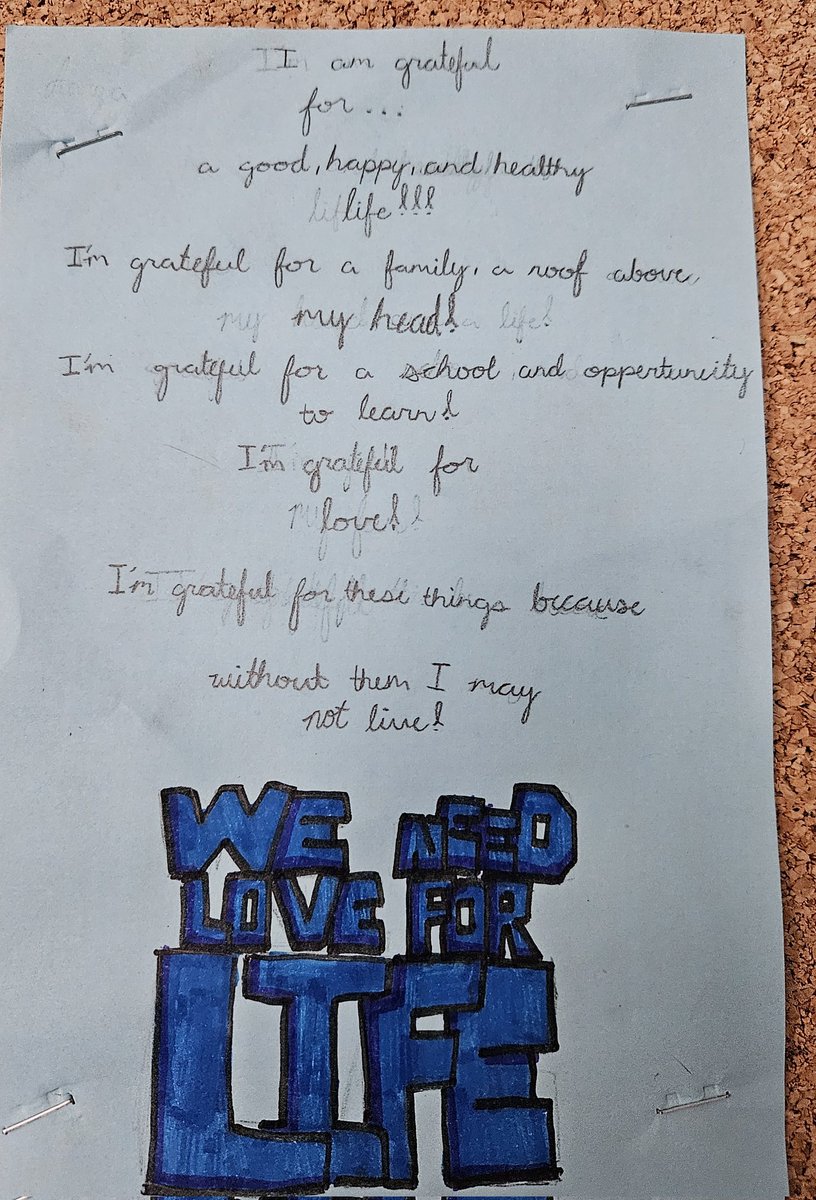 I am grateful
for...
a good, happy, and healthy
life!!!
I'm grateful for a family, a roof above,
my head!
I'm grateful for a school and oppertuneity
to learn!
I'm grateful for
love!
I'm grateful for these things because
without them I may
not live!
WE NEED
LOVE FOR
LIFE